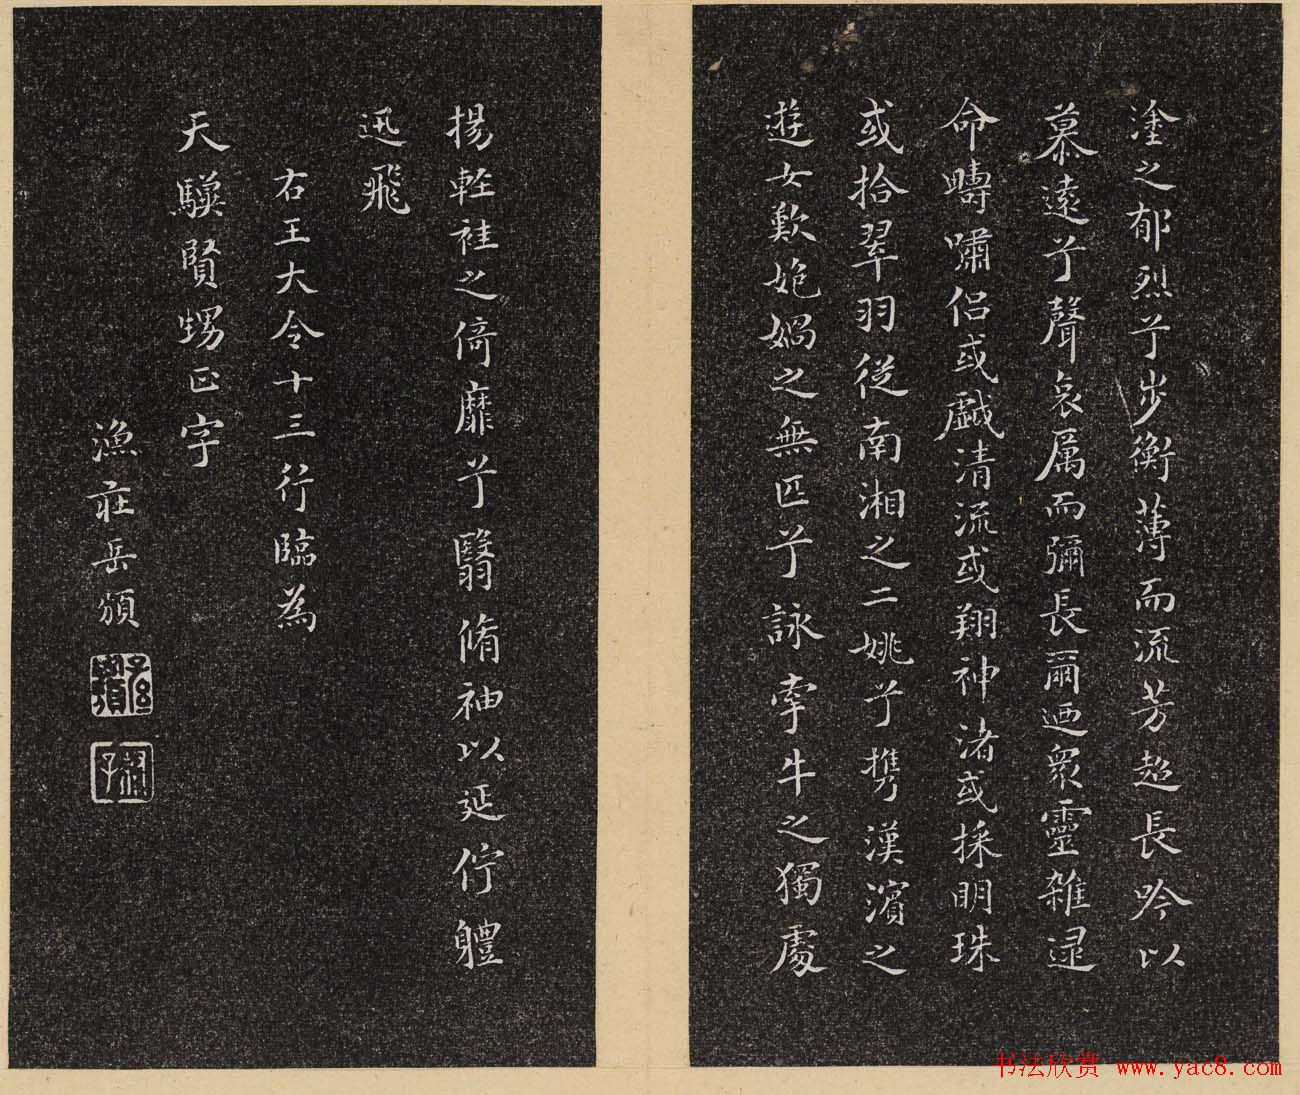 塗之郁烈兮步衡薄而流芳超長吟以
慕遠兮聲哀厲而彌長爾迺衆靈雜遝
命疇嘯侣或戲清流或翔神渚或採明珠
或拾翠羽從南湘之二姚兮攜漢濱之
遊女歎匏媧之無匹兮詠牽牛之獨處
揚輕袿之倚靡兮翳脩袖以延佇體
迅飛
右王大令十三行臨為
天驥賢甥正字
漁莊岳頒
书法欣赏 www.yac8.com